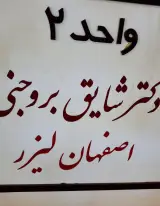 واحد ۲
دکتر شایق بروجنی
اصفهان لیزر